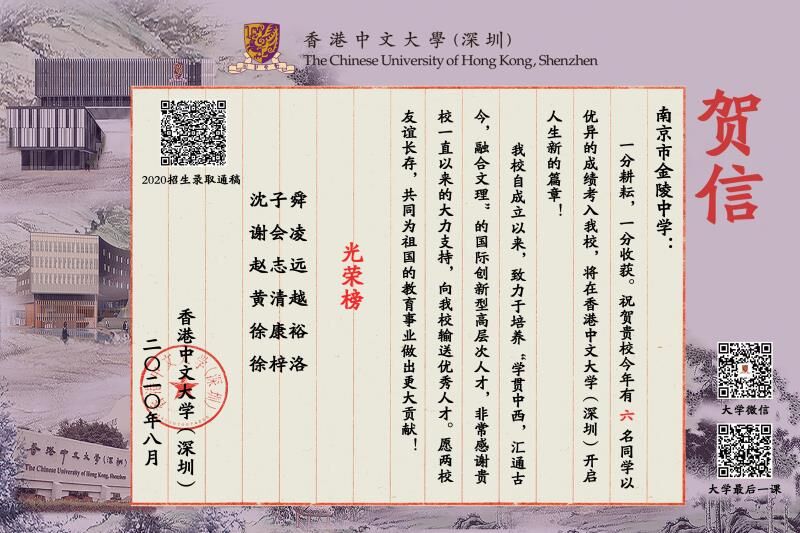 香港中文大學(深圳)
The Chinese University of Hong Kong, Shenzhen
贺信
南京市金陵中学：
一分耕耘，一分收获。祝贺贵校今年有 六 名同学以
优异的成绩考入我校，将在香港中文大学（深圳）开启
人生新的篇章！
我校自成立以来，致力于培养“学贯中西，汇通古
今，融合文理”的国际创新型高层次人才，非常感谢贵
校一直以来的大力支持，向我校输送优秀人才。愿两校
友谊长存，共同为祖国的教育事业做出更大贡献！
光荣榜
沈子舜
谢会凌
赵志远
黄清越
徐康裕
徐梓洛
香港中文大学（深圳）
二〇二〇年八月
2020招生录取通稿
大学微信
大学最后一课
香港中文大學(深圳)
The Chinese University of Hong Kong, Shenzhen